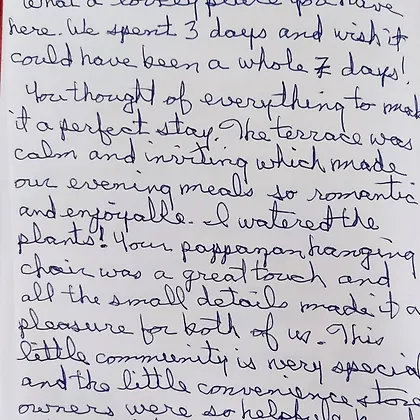 What a lovely place you have
here. We spent 3 days and wish it
could have been a whole 7 days!
You thought of everything to make
it a perfect stay. The terrace was
calm and inviting which made
our evening meals so romantic
and enjoyable. I watered the
plants! Your pappanjan hanging
chair was a great touch and
all the small details made it a
pleasure for both of us. This
little community is very special
and the little convenience store
owners were so helpful